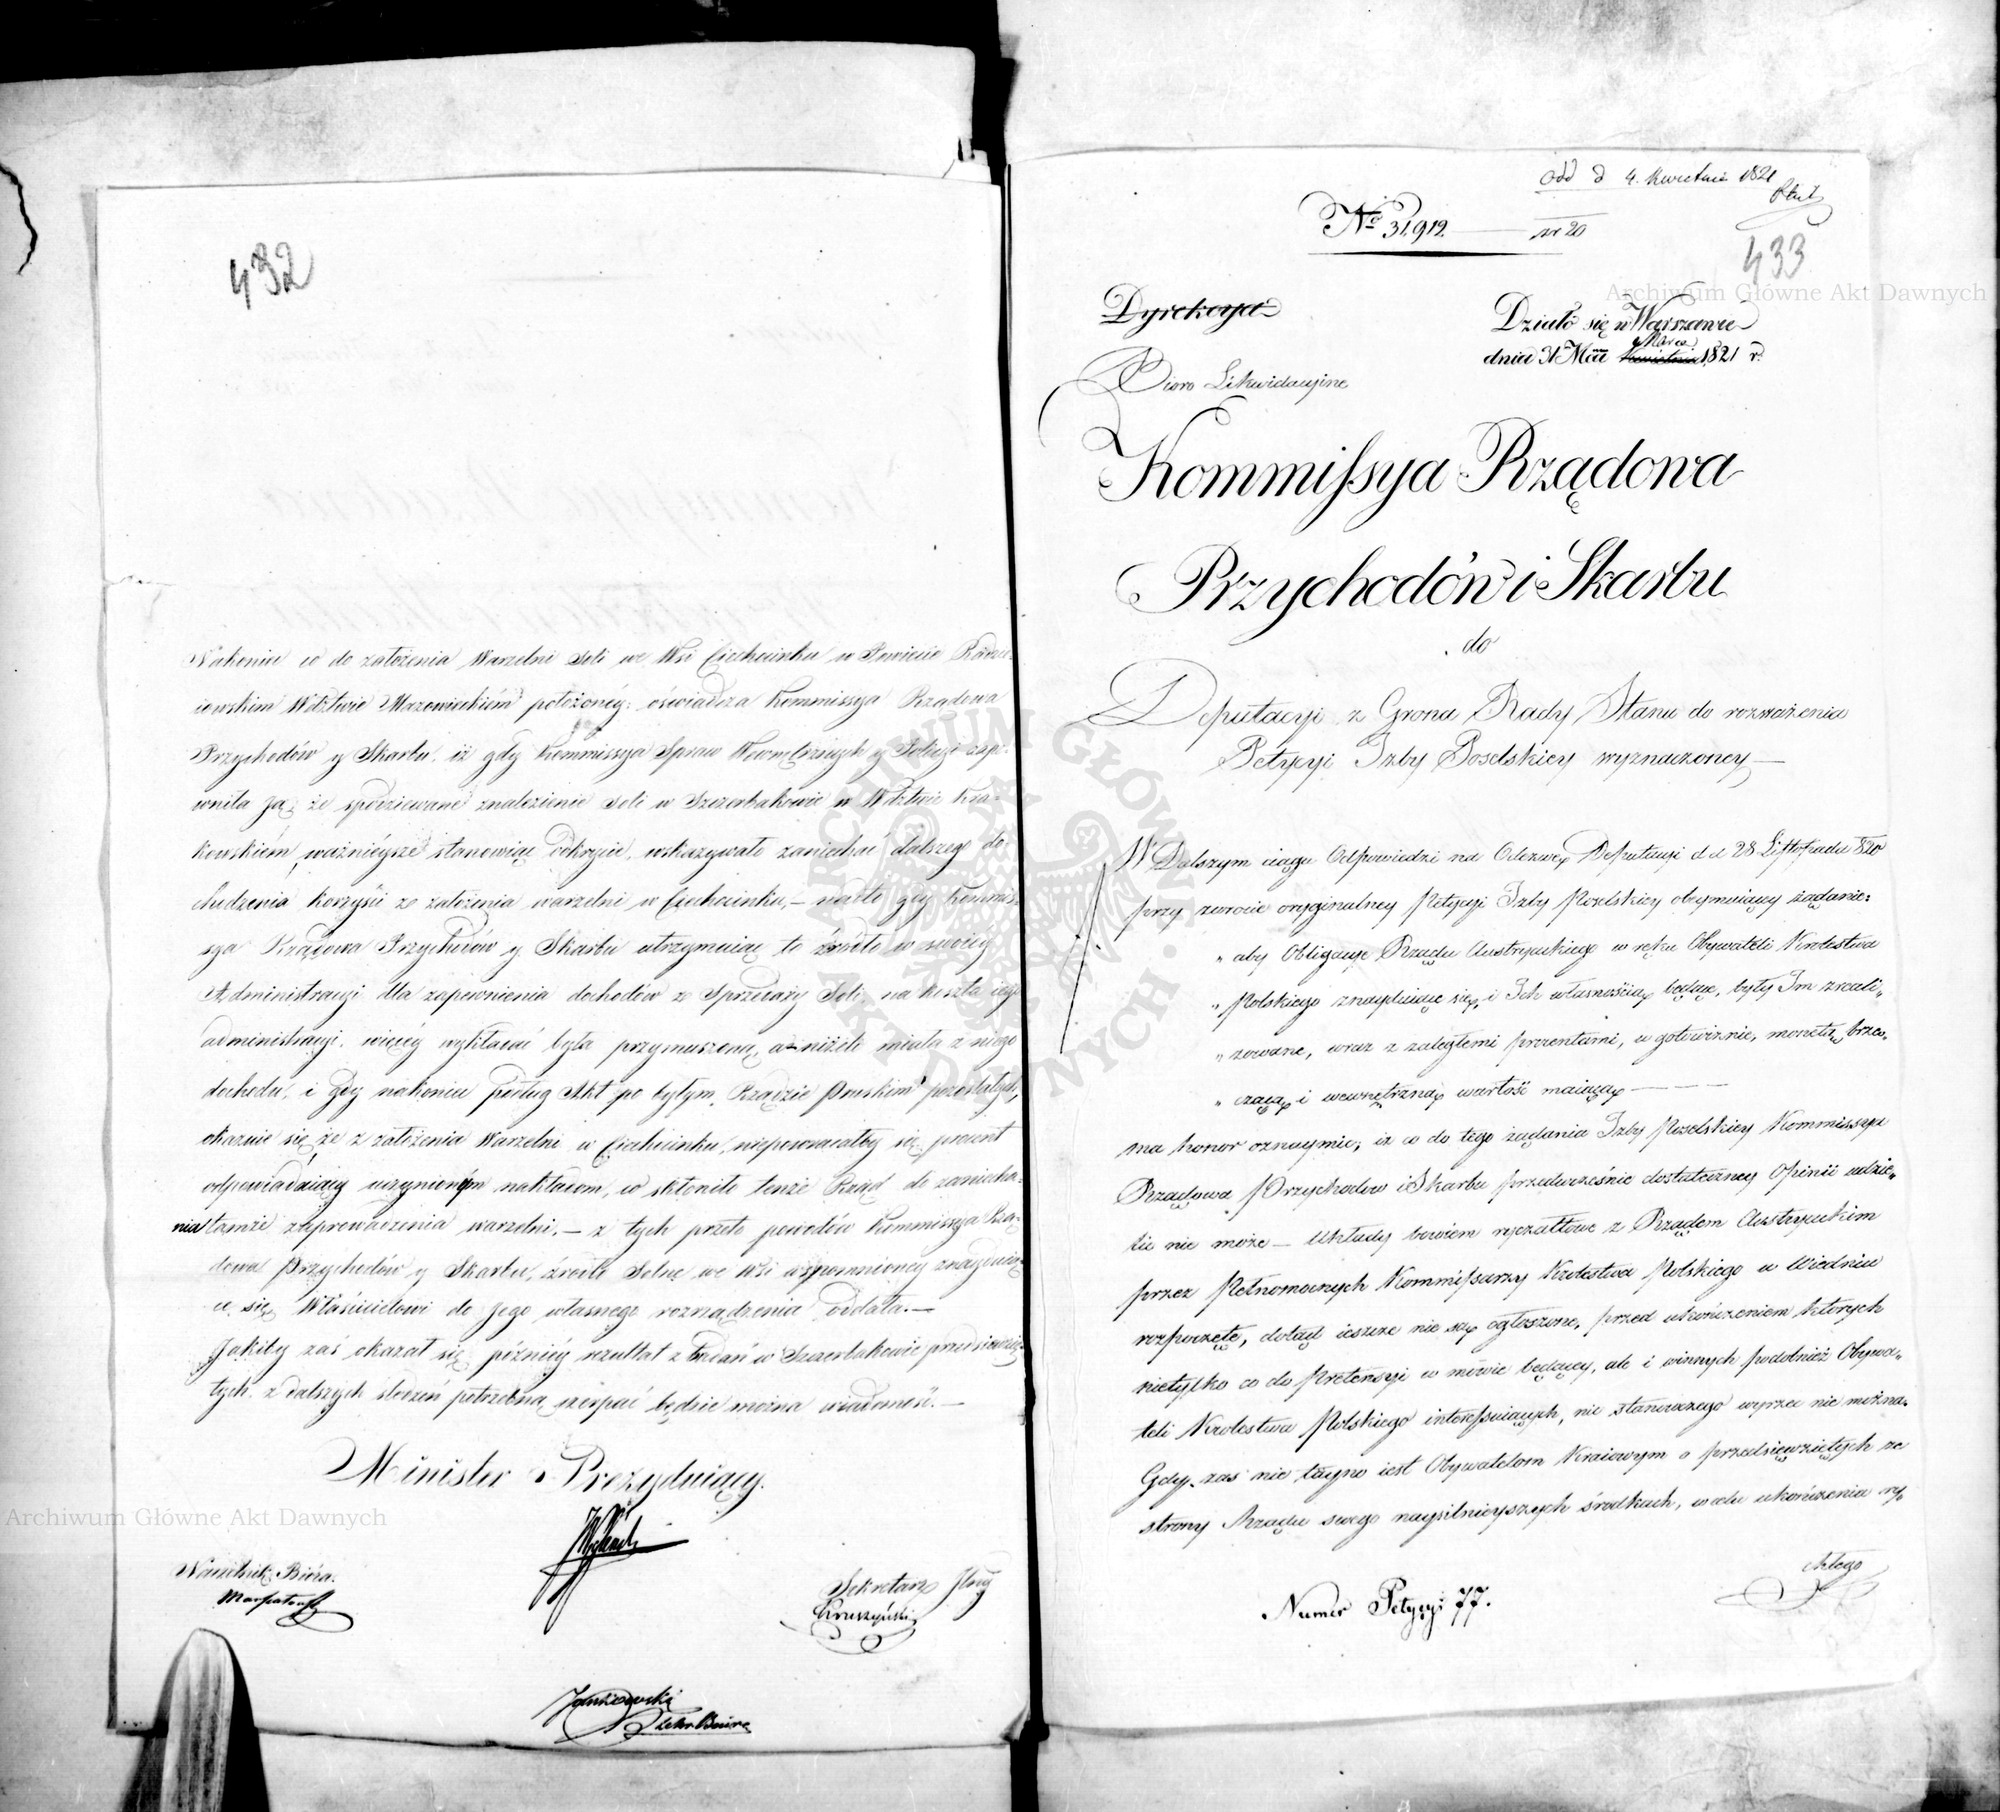 432
Nakoniec co do założenia Warzelni Soli we Wsi Ciechocinku w Powiecie Radzie-
iewskim Wdztwie Mazowieckiém położonéy; oświadcza Kommissya Rządowa
Przychodów y Skarbu, iż gdy Kommissya Spraw Wewnętrznych y Policyi zape-
wniła Ją, że spodziewane znalezienie Soli w Szczerbakowie w Wdztwie Kra-
kowskiém, ważnieysze stanowiąc odkrycie, wskazywało zaniechać dalszego do-
chodzenia korzyści ze założenia warzelni w Ciechocinku, – nadto gdy Kommis-
sya Rządowa Przychodów y Skarbu utrzymuiąc to źródło w swoiéy
Administracyi dla zapewnienia dochodów ze Sprzedaży Soli, na koszta iego
administracyi, więcéy wykładać była przymuszoną, aniżeli miała z niego
dochodu, i gdy nakoniec podług Akt po byłym Rządzie Pruskim pozostałych,
okazuie się że z założenia Warzelni w Ciechocinku, niepowracałby się procent
odpowiadaiący uczynionym nakładom, co skłoniło tenże Rząd do zaniecha-
nia tamże zaprowadzenia warzelni. – z tych przeto powodów Kommissya Rzą-
dowa Przychodów y Skarbu, źródło Solne we Wsi wspomnioney znayduią-
ce się Właścicielowi do Jego własnego rozrządzenia oddała. –
Jakiby zaś okazał się późniéy rezultat z badań w Szczerbakowie przedsięwzię-
tych, z dalszych śledzeń potrzebną czerpać będzie można wiadomość. –
Minister Prezyduiący.
Naczelnik Bióra.
Sekretarz Jlny
Kruszyński
Archiwum Główne Akt Dawnych
Odd d 4. Kwietnia 1821
No 31,912.
nr 20
433
Archiwum Główne Akt Dawnych
Dyrekcya
Działo się w Warszawie
Marca
dnia 31 Mca Kwietnia 1821 r.
Bioro Likwidacyine
Kommissya Rządowa
Przychodów i Skarbu
do
Deputacyi z Grona Rady Stanu do rozważenia
Petycyi Izby Poselskiey wyznaczoney –
W Dalszym ciągu Odpowiedzi na Odezwę Deputacyi d d 28 Listopada 1820
przy zwrocie oryginalney Petycyi Izby Poselskiey obeymuiący żądanie:
„ aby Obligacye Rządu Austryackiego w ręku Obywateli Krolestwa
„ Polskiego znayduiące się, i Ich własnością będące, były Im zreali„
„ zowane, wraz z zaległemi procentami, w gotowiznie, monetą brzę„
„ czącą i wewnętrzną wartość maiącą –
ma honor oznaymić, iż co do tego żądania Izby Poselskiey Kommissya
Rządowa Przychodow i Skarbu przedwcześnie dostateczney Opinii udzie„
lić nie może – Układy bowiem ryczałtowe z Rządem Austryackim
przez Pełnomocnych Kommissarzy Krolestwa Polskiego w Wiedniu
rozpoczęte, dotąd ieszcze nie są ogłoszone, przed ukończeniem ktorych
nietylko co do Pretensyi w mowie będącey, ale i innych podobnież Obywa„
teli Krolestwa Polskiego interessuiących, nic stanowczego wyrzec nie można.
Gdy zaś nie tayno iest Obywatelom Kraiowym o przedsięwziętych ze
strony Rządu swego naysilnieyszych środkach, w celu ukończenia ry„
chłego
Numer Petycyi 77.
ARCHIWUM GŁÓWNE AKT DAWNYCH